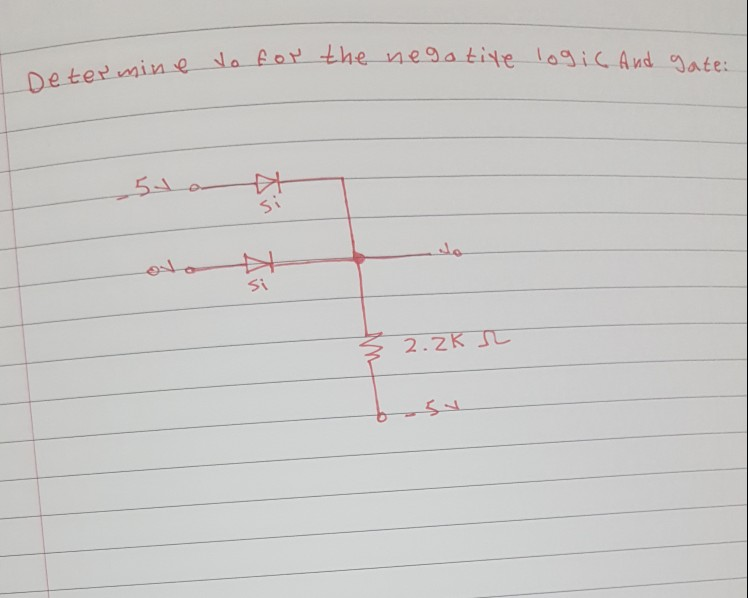 Determine Vo for the negative logic And gate:
-5V
Si
Vo
0V
Si
2.2K Ω
-5V